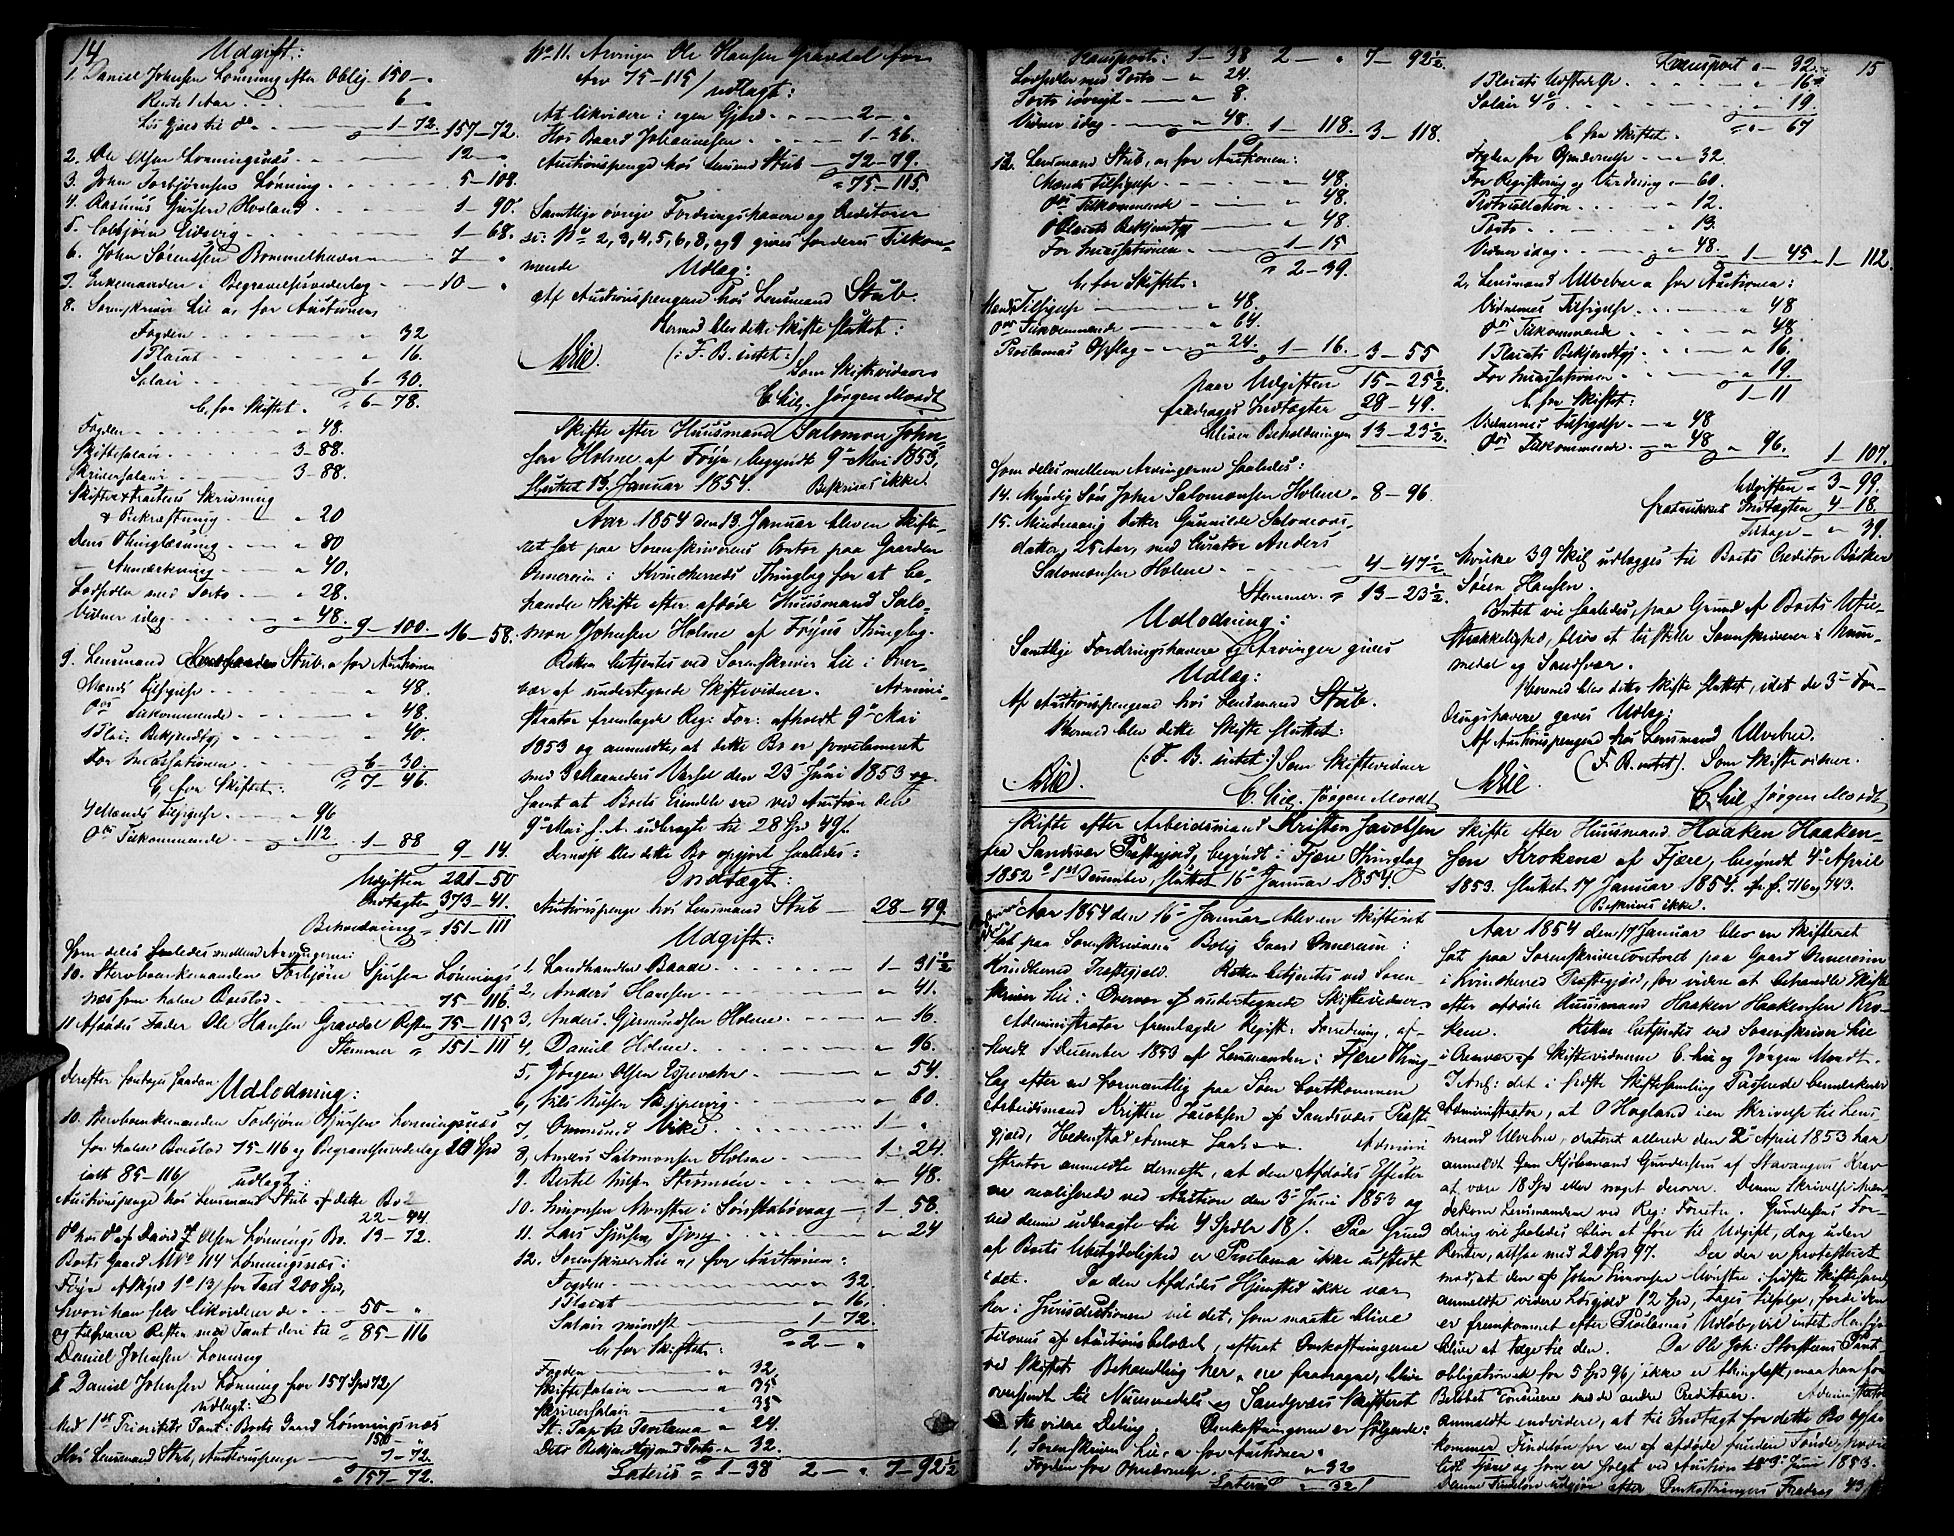 14
Udgift:
1. Daniel Johnsen Lønning efter Oblig. 150 - "
Rente 1 Aar 6 - "
1 - 72. 157 - 72.
2. Ole Olsen Lønningsnæs 12 - "
3. John Torbjørnsen Lønning 5 - 108.
4. Rasmus Hovland 1 - 90.
5. Eidberg 1 - 68.
6. John Sørensen Bommelhavn 7 - "
7. Enkemanden i Begravelsesvederlag 10 - "
8. Sorenskriver Lie a, for Auctionen
Fogden " 32
1 Placat " 16.
Salair 6 - 30.
" 6 - 78.
b, for Skiftet.
Fogden " 48.
Skiftesalair 3 - 88.
Skriversalair 3 - 88.
Skrivning
& Bekræftning " 20
Dens Thinglæsning " 80
- Anmærkning " 40.
Lodsedler med Porto " 28.
Vidner idag " 48. 9 - 100. 16 - 58.
9. Lensmand Stub, a for Auctionen
Mænds Tilsigelse " 48.
Do Tilkommende " 48.
1 Plac: Bekjendtgj " 40.
For Incassationen 6 - 30.
" 7 - 46.
b, for Skiftet:
4 Mænds Tilsigelse " 96
Do Tilkommende " 112 1 - 88 9 - 14.
Udgiften 221 - 50
Indtægten 373 - 41.
Beholdning " 151 - 111
Som deles saaledes mellem Arvingerne:
10. Stervboenkemanden Torbjørn Lønnings-
næs som halve Boeslod 75 - 116.
11 Afdødes Fader Ole Hansen Gravdal Resten 75 - 115
Stemmer " 151 - 111
Derefter foretages saadan
Udlodning:
10. Stervboenkemanden Torbjørn Lønningsnæs
for halve Boeslod 75 - 116 og Begravelsesvederlag 10 Spd
ialt 85 - 116/ udlagt:
Auctionspenge hos Lensmand Stub af dette Bo
22 - 44.
Do hos Do af David Olsen Lønnings Bo. 13 - 72.
Boets Gaard M No 114 Lønningsnæs i
Føyn for Taxt 200 Spd,
hvori han selv likviderer de 50 - "
og tilsvarer Resten med Pant deri til " 85 - 116
Daniel Johnsen Lønning
1 Daniel Johnsen Lønning for 157 Spd 72/
udlagt:
Med 1ste Prioritets Pant i Boets Gaard Lønningsnæs
150 - "
Hos Lensmand Stub, Auctionspenge 7 - 72.
" 157 - 72.
No 11. Arvingen Ole Hansen Gravdal for
Arv 75 - 115/ udlagt:
At likvidere i egen Gjeld 2 - "
Hos Baard Johannesen 1 - 36.
Auctionspenge hos Lensmand Stub 72 - 79.
" 75 - 115.
Samtlige øvrige Fordringshavere og Creditorer
No 2, 3, 4, 5, 6, 8, og 9 gives for deres Tilkom-
mende Udlæg:
Af Auctionspengene hos Lensmand Stub.
Hermed blev dette Skifte sluttet:
Lie. (: F. B. intet :)
Som Skiftevidner
C Lie, Jørgen Mordt
Skifte efter Huusmand Salomon John-
sen Holme af Føyn, begyndt 9de Mai 1853,
sluttet 13. Januar 1854. Beskrives ikke.
Aar 1854 den 13. Januar blev en Skifte-
ret sat paa Sorenskriverens Contor paa Gaarden
Omvereim i Kvindherreds Thinglag for at be-
handle Skifte efter afdøde Huusmand Salo-
mon Johnsen Holme af Føyns Thinglag.
Retten betjentes ved Sorenskriver Lie i Over-
vær af undertegnede Skiftevidner. Admini-
strator fremlagde Reg: For: afholdt 9de Mai
1853 og anmeldte, at dette Bo er proclameret
med 3 Maaneders Varsel den 23 Juni 1853 og
samt at Boets Eiendele ere ved Auction den
9de Mai f. A. udbragte til 28 Spd 49/.
Dernæst blev dette Bo opgjort saaledes:
Indtægt:
Auctionspenge hos Lensmand Stub 28 - 49.
Udgift:
1, Landhandler Baade 1 - 31½
2, Anders Hansen " 41.
3, Anders Gjermundsen Holme " 16.
4, Daniel Holme " 96.
5, Jørgen Olsen Espevær " 54.
6, Nils Nilsen " 60.
7, Ommund Vike 1 "
8, Anders Salomonsen Holme 1 - 24.
9. Bertel Nilsen Strømøen " 48.
10. Simonsen Monstre i Sønstabøvaag 1 - 58.
11. Lars " 24
12. Sorenskriver Lie a, for Auctionen:
Fogden " 32
1 Placat " 16.
Salair mindst 1 - 72.
" 2 - "
b, for Skiftet:
Fogden " 32
Skiftesalair " 35
Skriversalair " 35
St: Pap: til Proclama " 24
Dets Bekjendtgj. med Porto " 32.
Lateris " 1 - 38 2 - " 7 - 92½
Transport: 1 - 38 2 - " 7 - 92½
Lodsedler med Porto " 24.
Porto iøvrigt " 8.
Vidner idag " 48. 1 - 118. 3 - 118.
13. Lensmand Stub, a, for Auctionen:
Mænds Tilsigelse " 48.
Do Tilkommende " 48.
Placats Bekjendtgj " 48.
For Incassationen 1 - 15
" 2 - 39.
b, for Skiftet:
Mænds Tilsigelse " 48.
Do Tilkommende " 64.
Proclamas Opslag " 24. 1 - 16. 3 - 55
Udgiften 15 - 25½
fradrages Indtægten 28 - 49.
bliver Beholdningen 13 - 23½.
Som deles mellem Arvingerne saaledes:
14. Myndig Søn John Salomonsen Holme 8 - 96.
15. Mindreaarig datter Gunnilde Salomons-
datter, 25 Aar, med Curator Anders
Salomonsen Holme 4 - 47½
Stemmer " 13 - 23½.
Udlodning:
Samtlige Fordringshavere og Arvinger gives
Udlæg:
Af Auctionspengene hos Lensmand Stub.
Hermed blev dette Skifte sluttet:
(: F. B. intet :) Som Skiftevidner
Lie. C. Lie. Jørgen Mordt
Skifte efter Arbeidsmand Kristen Jacobsen
fra Sandsvær Præstegjeld, begyndt i Fjære Thinglag
1852 1ste December, sluttet 16de Januar 1854.
Aar 1854 den 16de Januar blev en Skifteret
sat paa Sorenskriverens Bolig Gaard Omvereim i
Kvindherred Præstegjeld. Retten betjentes ved Soren-
skriver Lie i Overvær af undertegnede Skiftevidner.
Administrator fremlagde Regist: Forretning, af-
holdt 1 December 1853 af Lensmanden i Fjære Thing-
lag efter en formentlig paa Søen bortkommen
Arbeidsmand Kristen Jacobsen af Sandsværs Præste-
gjeld, Hedenstad Admini-
strator anmeldte dernæst, at den Afdødes Effecter
ere realiserede ved Auction den 3die Juni 1853 og
ved denne udbragte til 4 Spdlr 18/. Paa Grund
af Boets Ubetydelighed er Proclama ikke udstedt
i det. Da den Afdødes Hjemsted ikke var
her i Jurisdictionen vil det, som maatte blive
tilovers af Auctionsbeløbet, efterat Omkostningerne
ved Skiftets Behandling her, ere fradragne, blive
oversendt til Numedals og Sandsværs Skifteret
til videre Deling. Omkostningerne er følgende:
1, Sorenskriver Lie, a for Auctionen:
Fogden for Omdrevelse " 32
Lateris " 32/
15
Transport " - 32.
1 Placats Udstedelse " 16
Salair 4 % " 19.
" - 67
b for Skiftet.
Fogden for " 32.
For Registrering og Vurdering " 60.
Protocollation " 12.
Porto " 13.
Vidner idag " 48. 1 - 45 1 - 112.
2, Lensmand Ulvebne a for Auctionen:
Vidnernes Tilsigelse " 48
Do Tilkommende " 48.
1 Placats Bekjendtgj. " 16.
For Incassationen " 19.
1 - 11
b for Skiftet:
Vidnernes Tilsigelse " 48
Do Tilkommende " 48 " 96. 1 - 107.
Udgiften " 3 - 99.
fratrukken Indtægten 4 - 18.
Tilbage " 39.
hvilke 39 Skil. udlægges til Boets Creditor Bødker
Søren Hansen.
Intet vil saaledes, paa Grund af Boets Util-
strækkelighed, blive at tilstille Sorenskriveren i Num-
medal og Sandsvær.
Hermed blev dette Skifte sluttet, idet de 3de For-
dringshavere gaves Udlæg:
Af Auctionspengene hos Lensmand Ulvebne.
(F. B. intet). Som Skiftevidner.
Lie C. Lie Jørgen Mordt
Skifte efter Huusmand Haaken Haaken-
sen Krokene af Fjære, begyndt 4de April
1853. sluttet 17 Januar 1854. cfr. f. 716 og 743.
Beskrives ikke.
Aar 1854 den 17 Januar blev en Skifteret
sat paa Sorenskrivercontoret paa Gaard Omvereim
i Kvindherred Præstegjeld, for videre at behandle Skifte
efter afdøde Huusmand Haaken Haakensen Kro-
kene. Retten betjentes ved Sorenskriver Lie
i Overvær af Skiftevidnerne C. Lie og Jørgen Mordt.
I Anl: det i sidste Skiftesamling Passerede bemærkede
Administrator, at O Hogland i en Skrivelse til Lens-
mand Ulvebne, dateret allerede den 2de April 1853 har
anmeldt Gundersens af Stavangers Krav
at være 18 Spd eller noget derover. Denne Skrivelse
Lensmanden ved Reg: Forretn. Gundersens For-
dring vil saaledes blive at føre til Udgift, dog uden
Renter, altsaa med 20 Spd 97. Da der er protesteret
mod, at den af John Simonsen Monstre i sidste Skiftesaml.
anmeldte videre Løsgjeld 12 Spd, tages tilfølge, fordi den
er fremkommet efter Proclamas Udløb, vil intet Hensyn
blive at tage til den. Da Ole Joh: Storstens Pant-
obligation for 5 Spd 96/ ikke er thinglæst, maa han for
Beløbet concurere med andre Creditorer. Administrator
anmeldte endvidere, at til Indtægt for dette Bo ogsaa
kommer Findeløn for en af afdøde funden Tønde,
som er solgt ved Auction 3de Juni 1853.
Denne Findeløn udgjør efter Omkostningers Fradrag 43/